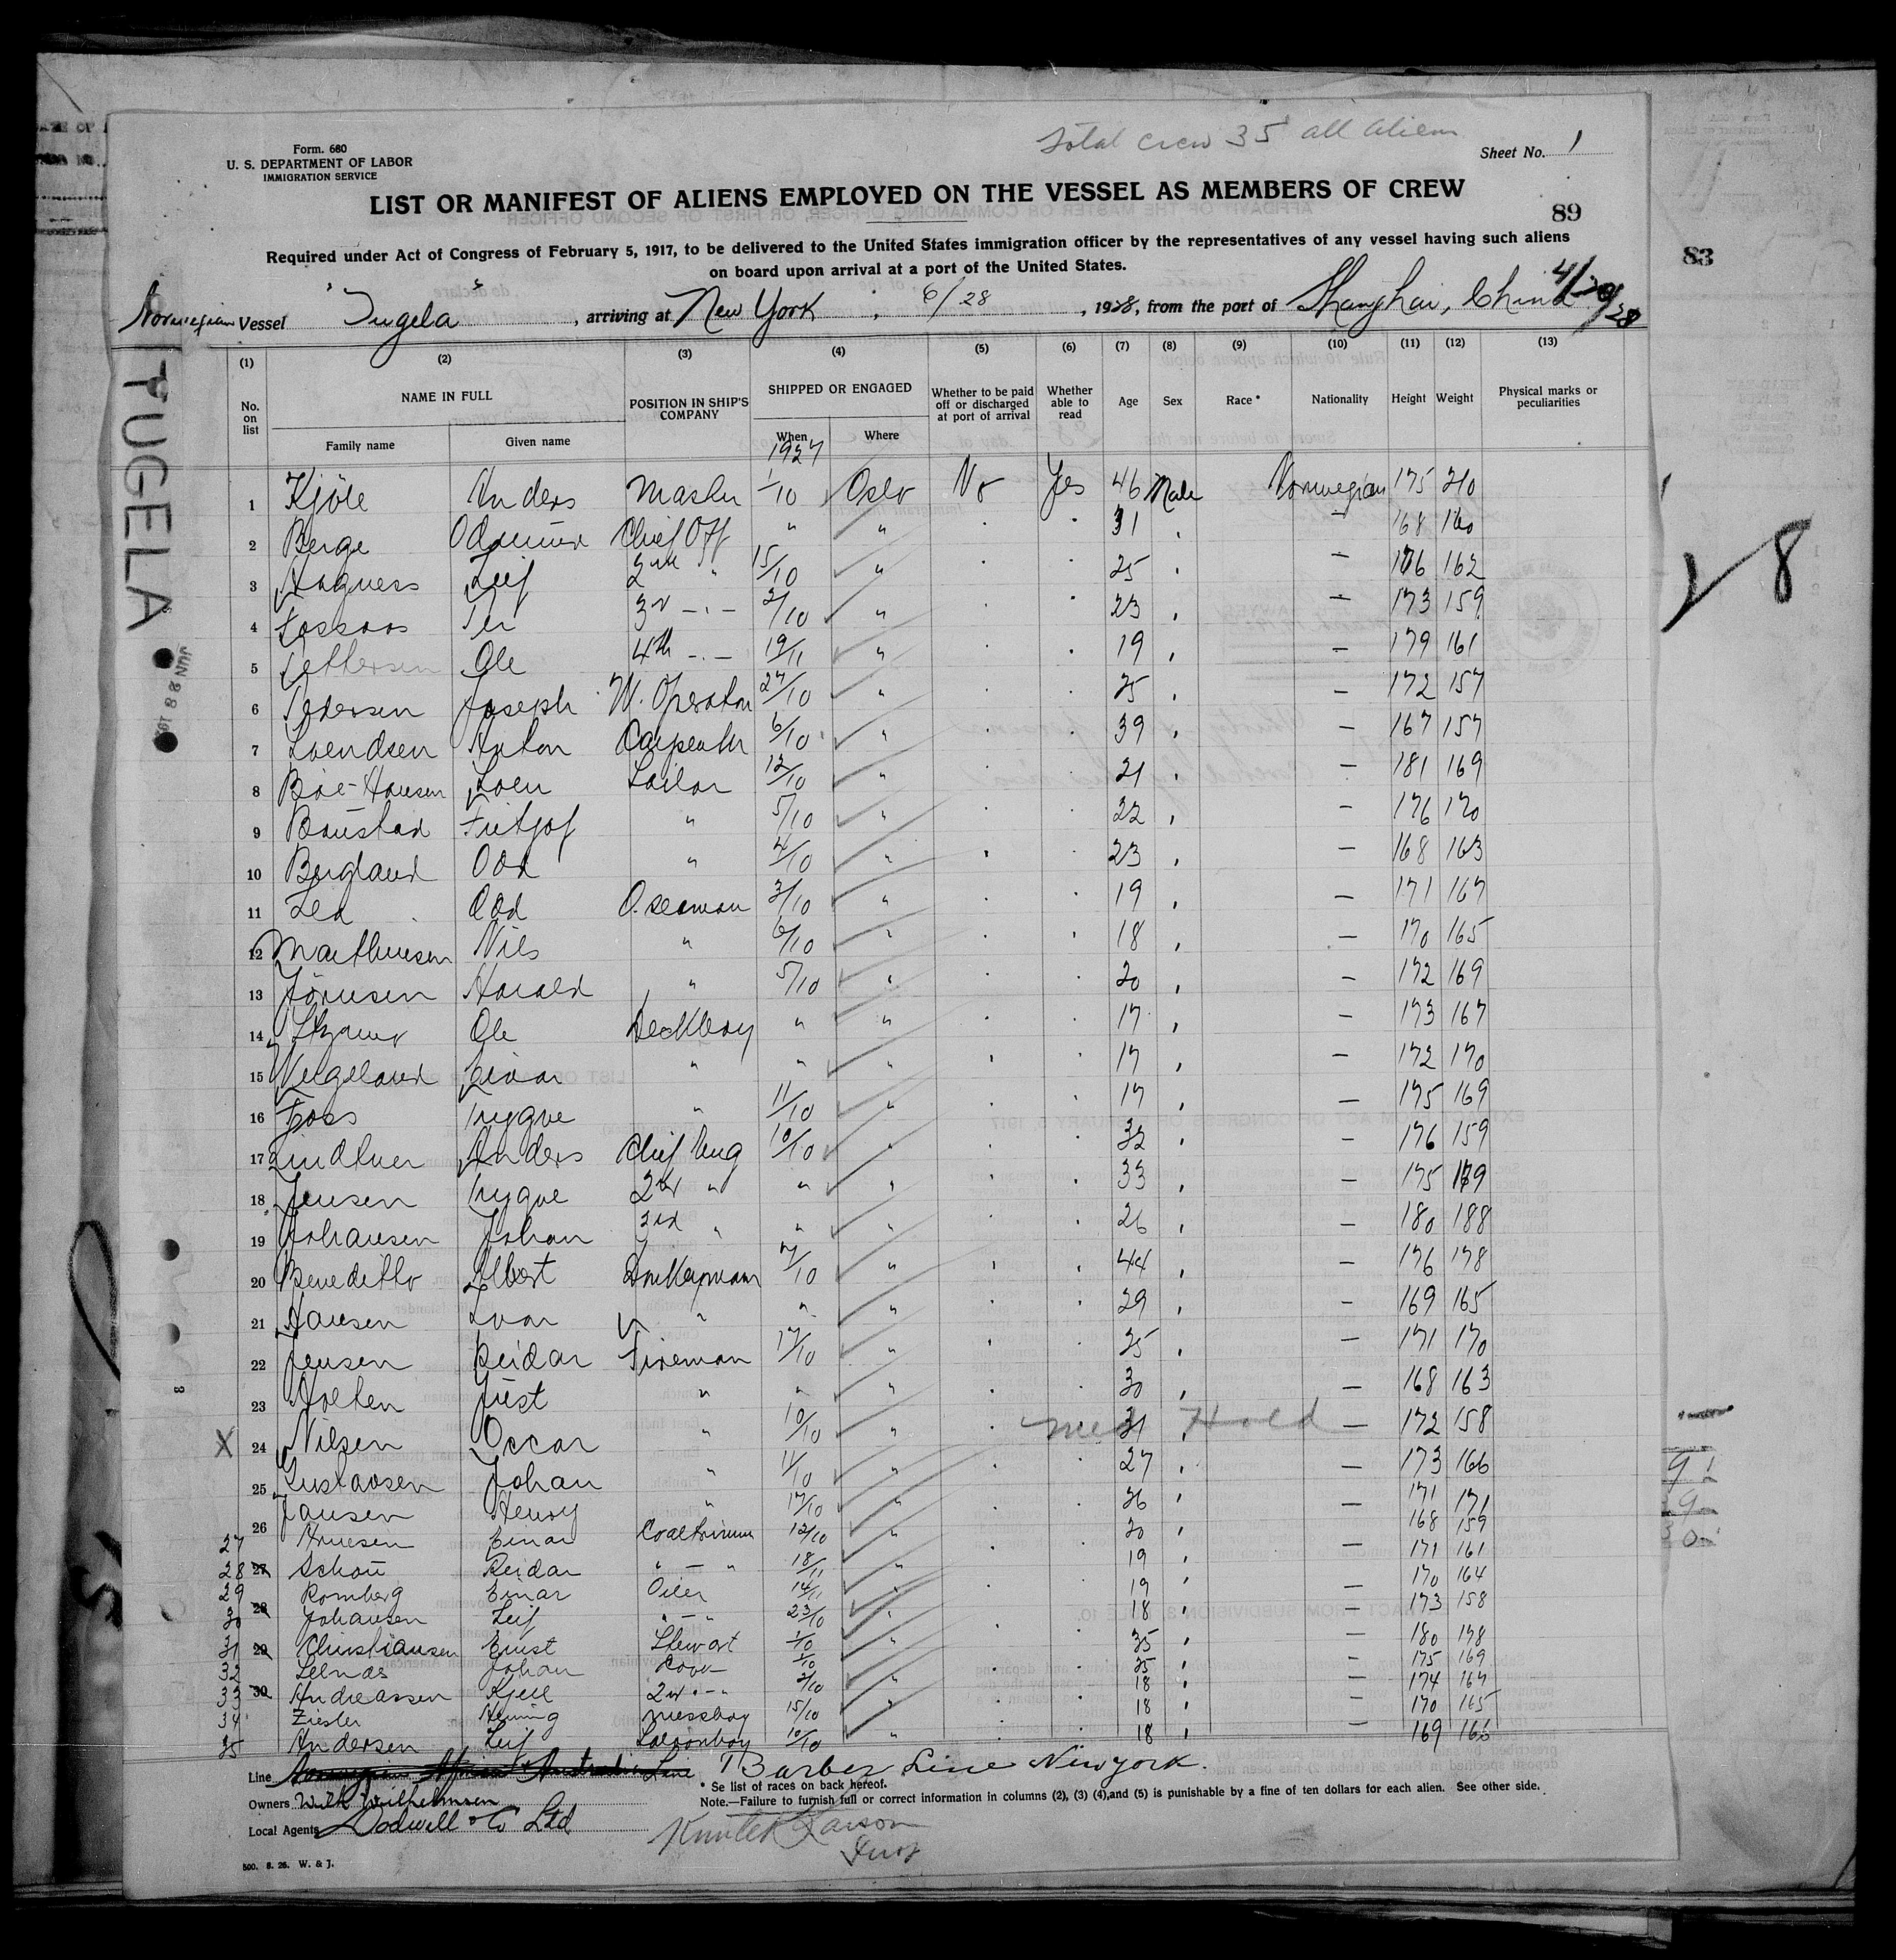 Total crew 35 all aliens
Form. 680
U. S. DEPARTMENT OF LABOR
IMMIGRATION SERVICE
Sheet No. 1
LIST OR MANIFEST OF ALIENS EMPLOYED ON THE VESSEL AS MEMBERS OF CREW
89
83
Required under Act of Congress of February 5, 1917, to be delivered to the United States immigration officer by the representatives of any vessel having such aliens
on board upon arrival at a port of the United States.
Norwegian Vessel "Tugela", arriving at New York, 6/28, 1928, from the port of Shanghai, China 4/20/28
TUGELA
(1) (2) (3) (4) (5) (6) (7) (8) (9) (10) (11) (12) (13)
No. on list NAME IN FULL POSITION IN SHIP'S COMPANY SHIPPED OR ENGAGED Whether to be paid off or discharged at port of arrival Whether able to read Age Sex Race* Nationality Height Weight Physical marks or peculiarities
Family name Given name When Where
1927
1 Kjöle Anders Master 1/10 Oslo No Yes 46 Male Norwegian 175 210
2 Berge Chief Off " " 31 — 168 160
3 Hagness Leif 2nd " 15/10 " 25 — 176 162
4 Fossaas Per 3r —.— 2/10 " 23 — 173 159
5 Ole 4th —.— 19/11 " 19 — 179 161
6 Pedersen Joseph W. Operator 27/10 " 25 — 172 157
7 Svendsen Anton Carpenter 6/10 " 39 — 167 157
8 Böe-Hansen Soen Sailor 12/10 " 21 — 181 169
9 Baustad Fritjof " 5/10 " 22 — 176 170
10 Bergland Odd " 4/10 " 23 — 168 163
11 Lea Odd O. seaman 3/10 " 19 — 171 167
12 Mathiesen Nils " 6/10 " 18 — 170 165
13 Jörnsen Harald " 5/10 " 20 — 172 169
14 Ole Deckboy " " 17 — 173 167
15 Vegeland Einar " " " 17 — 172 170
16 Foss Trygve " 11/10 " 17 — 175 169
17 Lindtner Anders Chief Eng 10/10 " 32 — 176 159
18 Jensen Trygve 2nd " " " 33 — 175 179
19 Johansen Johan 3rd " " " 26 — 180 188
20 Beneditto Albert Donkeyman 7/10 " 44 — 176 178
21 Hansen Ivar " " " 29 — 169 165
22 Jensen Reidar Fireman 17/10 " 25 — 171 170
23 Holten Just " " " 30 — 168 163
X 24 Nilsen Occar " 10/10 " 31 Med Hold — 172 158
25 Gustavsen Johan " 11/10 " 27 — 173 166
26 Jansen Henry " 17/10 " 26 — 171 171
27 Einar Coaltrimmer 12/10 " 20 — 168 159
28 27 Schou Reidar " — " 18/11 " 19 — 171 161
29 Romberg Einar Oiler 14/11 19 — 170 164
30 28 Johansen Leif " — " 23/10 " 18 — 173 158
31 29 Christiansen Ernst Stewart 1/10 " 35 — 180 178
32 Johan Cook 1/10 25 — 175 169
33 30 Andreassen Kjell 2nd " — " 2/10 " 18 — 174 167
34 Ziesler Henning Messboy 15/10 " 18 — 170 165
35 Andersen Leif Saloonboy 10/10 " 18 — 169 166
Line Norwegian African Australia Line Barber Line New york.
* Se list of races on back hereof.
Owners Wilh Wilhelmsen
Note.—Failure to furnish full or correct information in columns (2), (3) (4),and (5) is punishable by a fine of ten dollars for each alien. See other side.
Local Agents Dodwell & Co Ltd
500. 8. 26. W. & J.